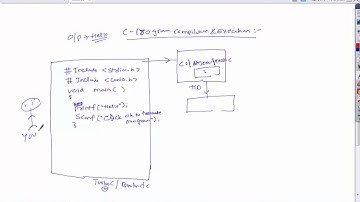 O/P → Hello
C-Program Compilation & Execution :-
# Include <stdio.h>
# Include <conio.h>
void main( )
{
printf("Hello");
Scanf("Click ok to terminate
program");
}
YOU
HD
Turbo C /